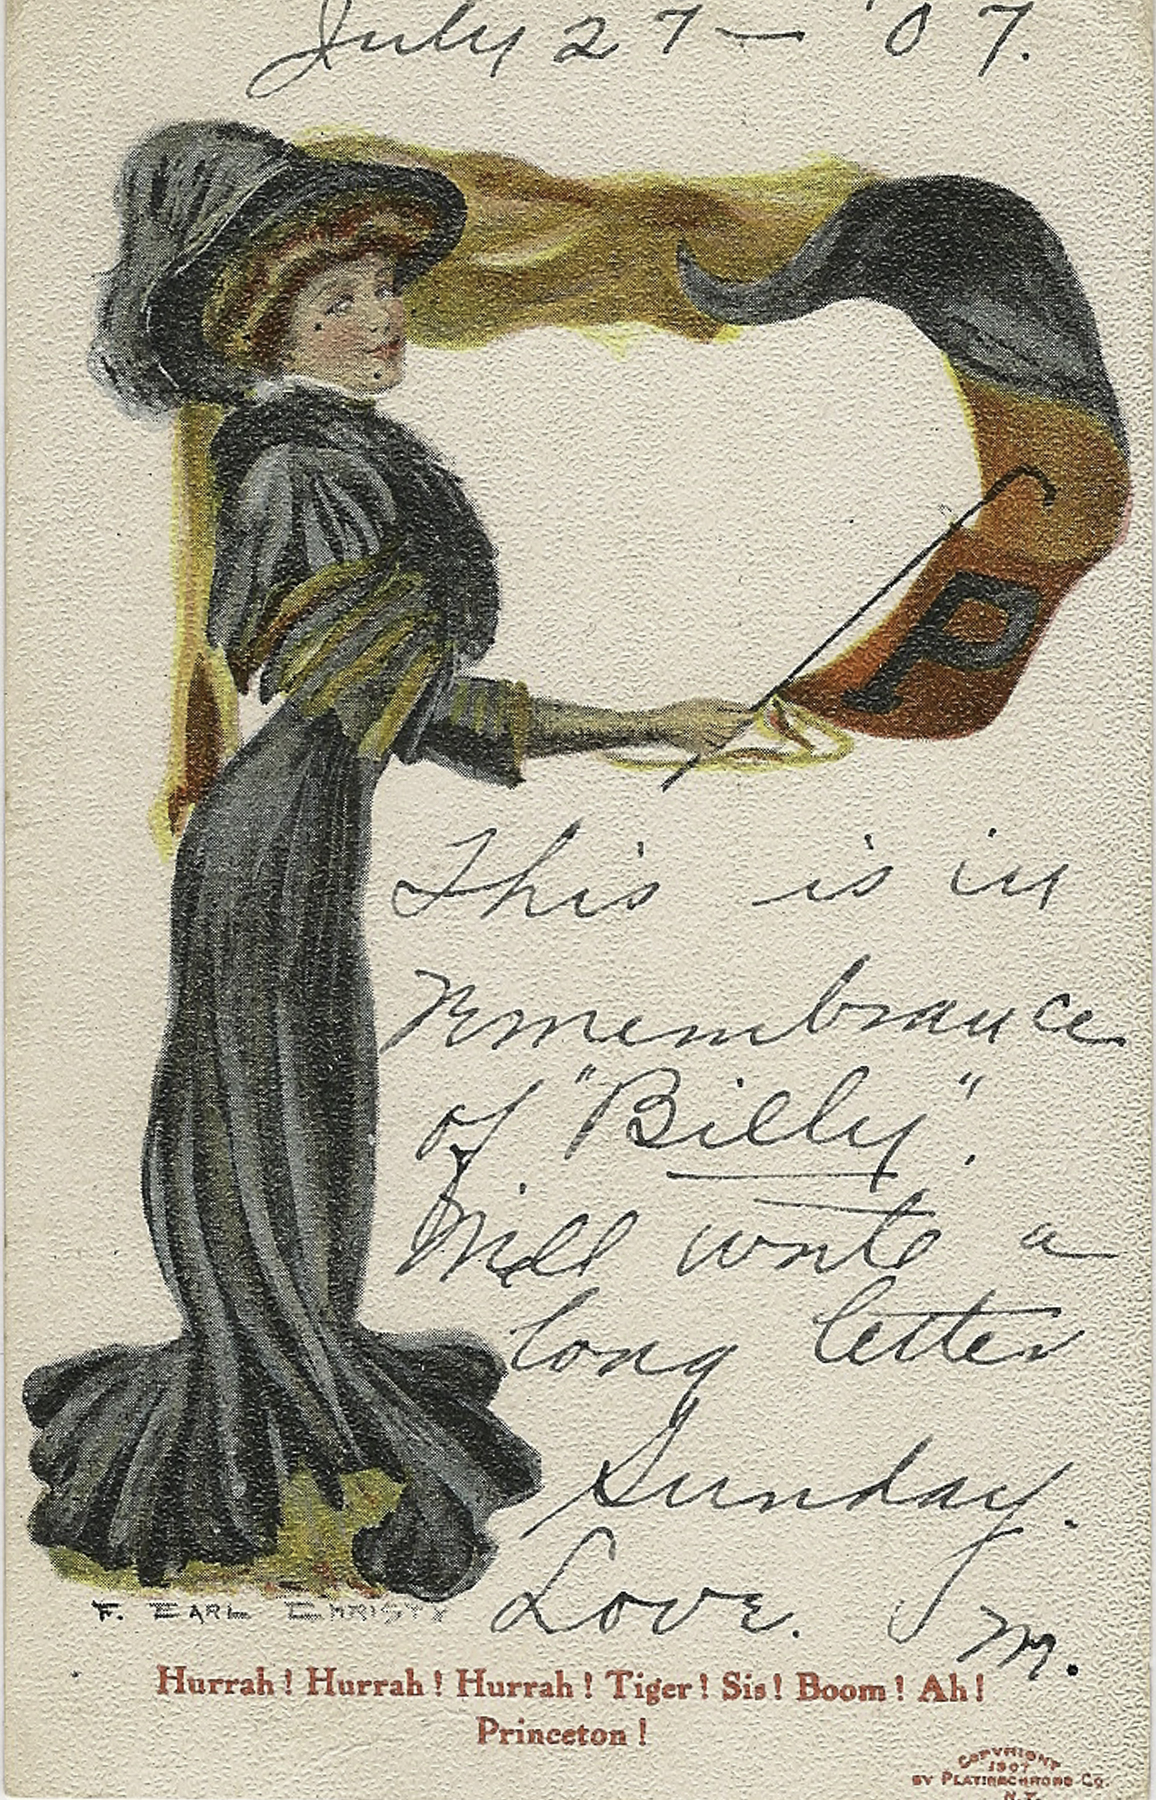 July 27 — '07.
P
This is in
remembrance
of "Billy".
Will write a
long letter
Sunday.
Love. M.
F. EARL CHRISTY
Hurrah! Hurrah! Hurrah! Tiger! Sis! Boom! Ah!
Princeton!
COPYRIGHT
1907
BY PLATINACHROME CO.
N.Y.